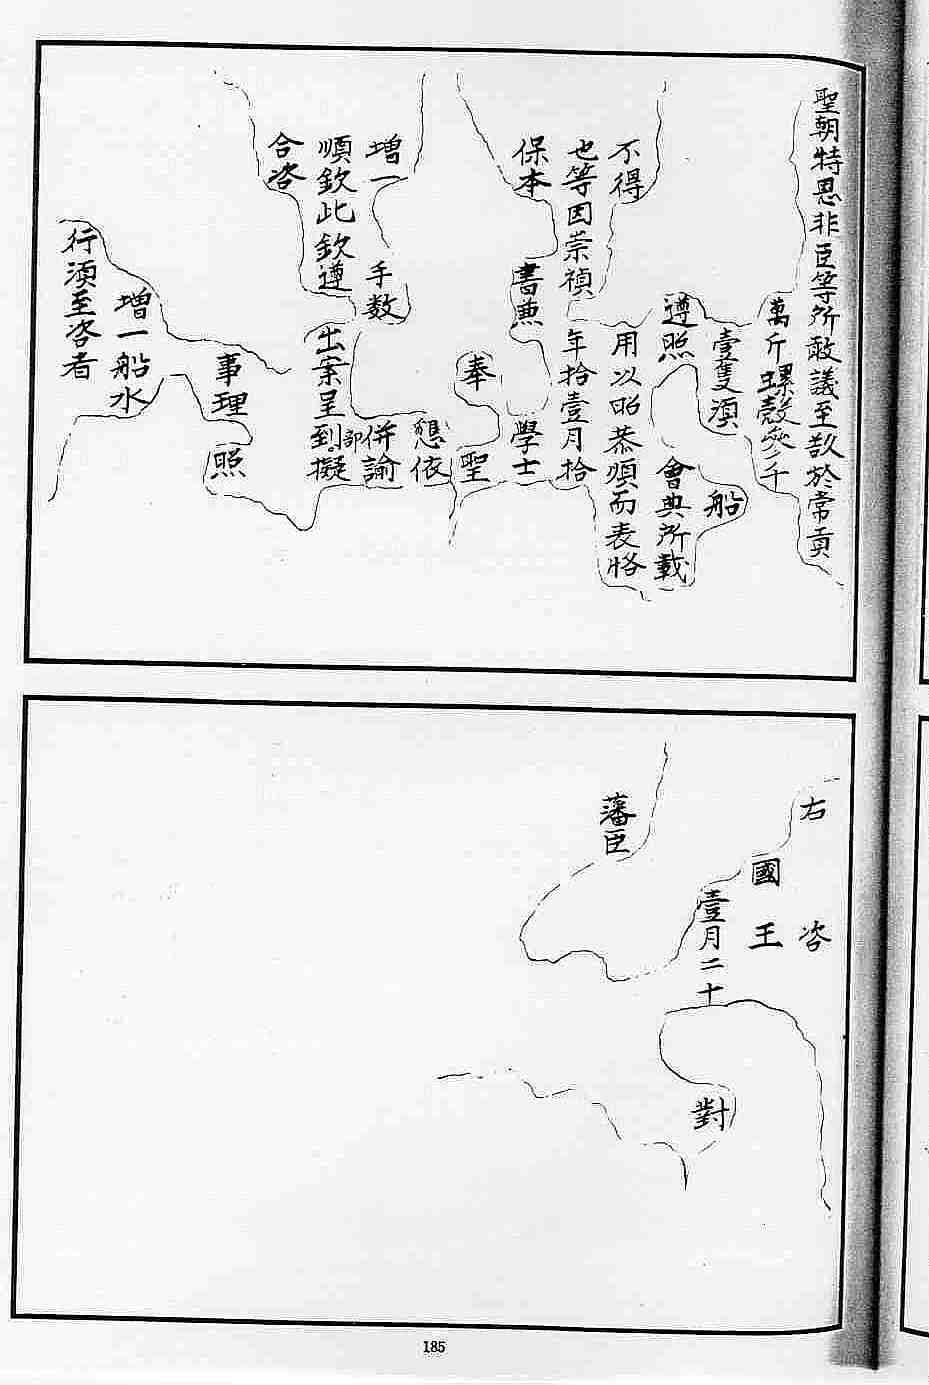 聖朝特恩非臣等所敢議至於常貢
萬斤螺殼參千
壹隻須
船
遵照
會典所載
不得
用以昭恭順而表恪
也等因崇禎
年拾壹月拾
保本
書兼
學士
奉
聖
懇依
增一
手数
併諭
部
順欽此欽遵
出案呈到擬
合咨
事理
照
增一船水
行須至咨者
右
咨
國
王
壹月二十
對
藩臣
185